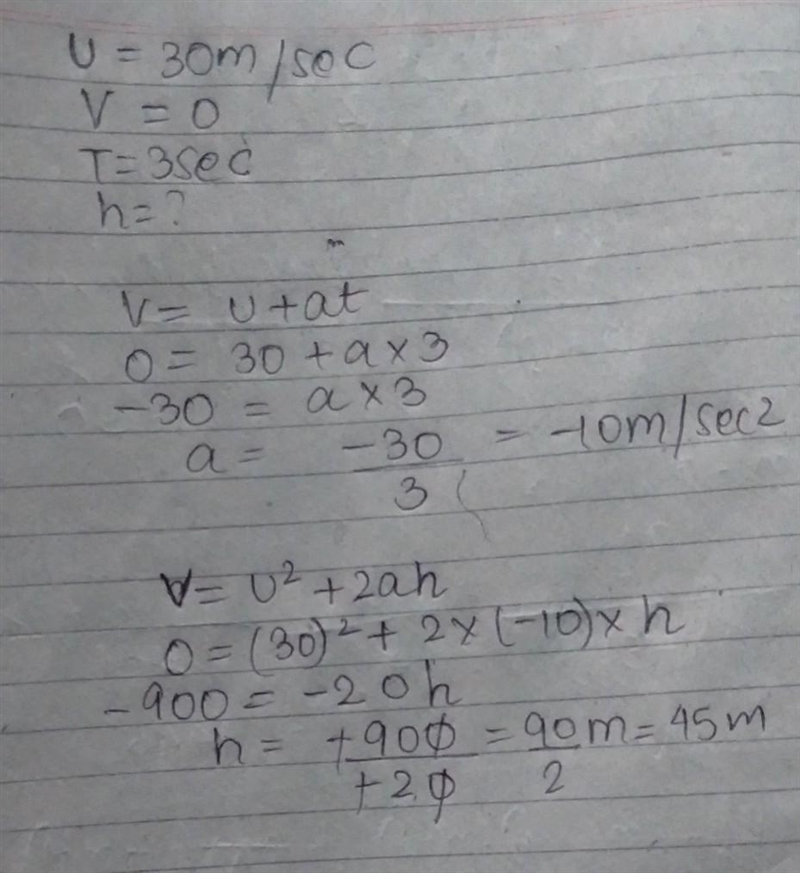 U = 30m/sec
V = 0
T = 3sec
h = ?
V = U + at
0 = 30 + a × 3
-30 = a × 3
a = -30/3 = -10m/sec2
V = U² + 2ah
0 = (30)² + 2 × (-10) × h
-900 = -20h
h = +900/+20 = 90/2 m = 45m